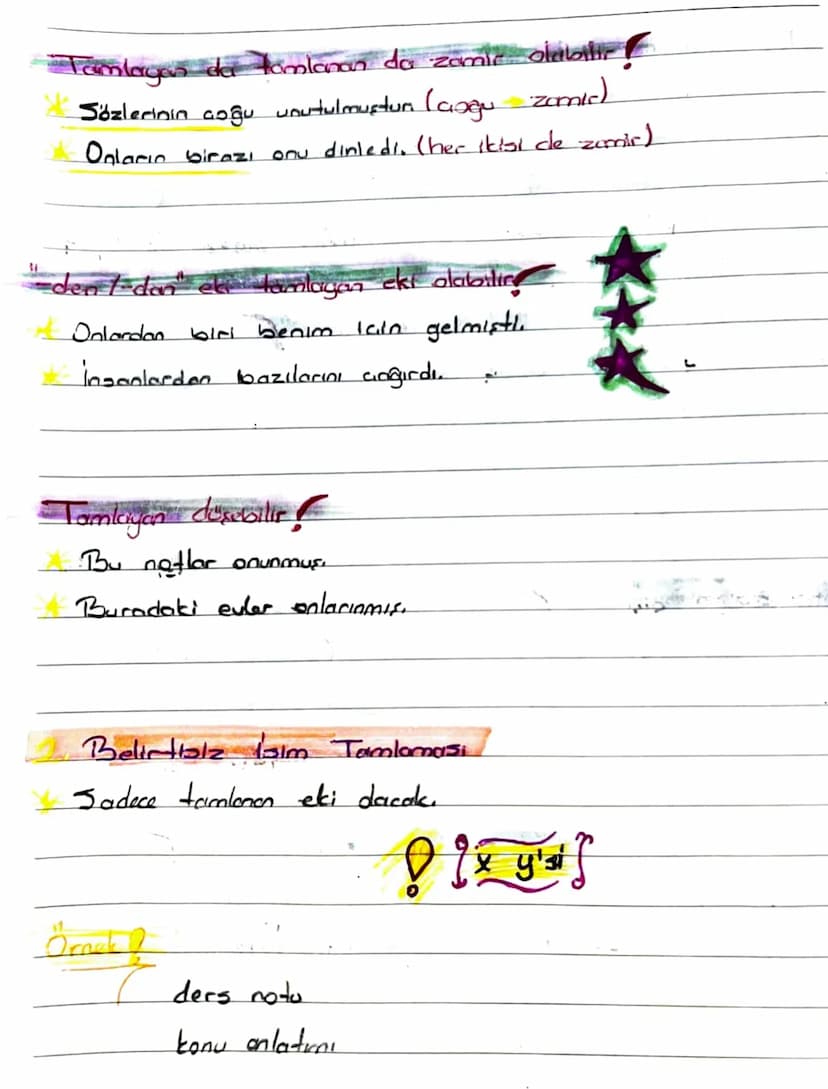 Tamlayan da tamlanan da zamir olabilir!
Sözlerinin çoğu unutulmuştur (çoğu → zamir)
Onların birazı onu dinledi. (her ikisi de zamir)
"-den/-dan" eki tamlayan eki olabilir!
Onlardan biri benim için gelmişti.
İnsanlardan bazılarını çağırdı.
Tamlayan düşebilir!
Bu notlar onunmuş.
Buradaki evler onlarınmış.
2. Belirtisiz İsim Tamlaması
Sadece tamlanan eki alacak.
! { x y'si }
Örnek!
ders notu
konu anlatımı